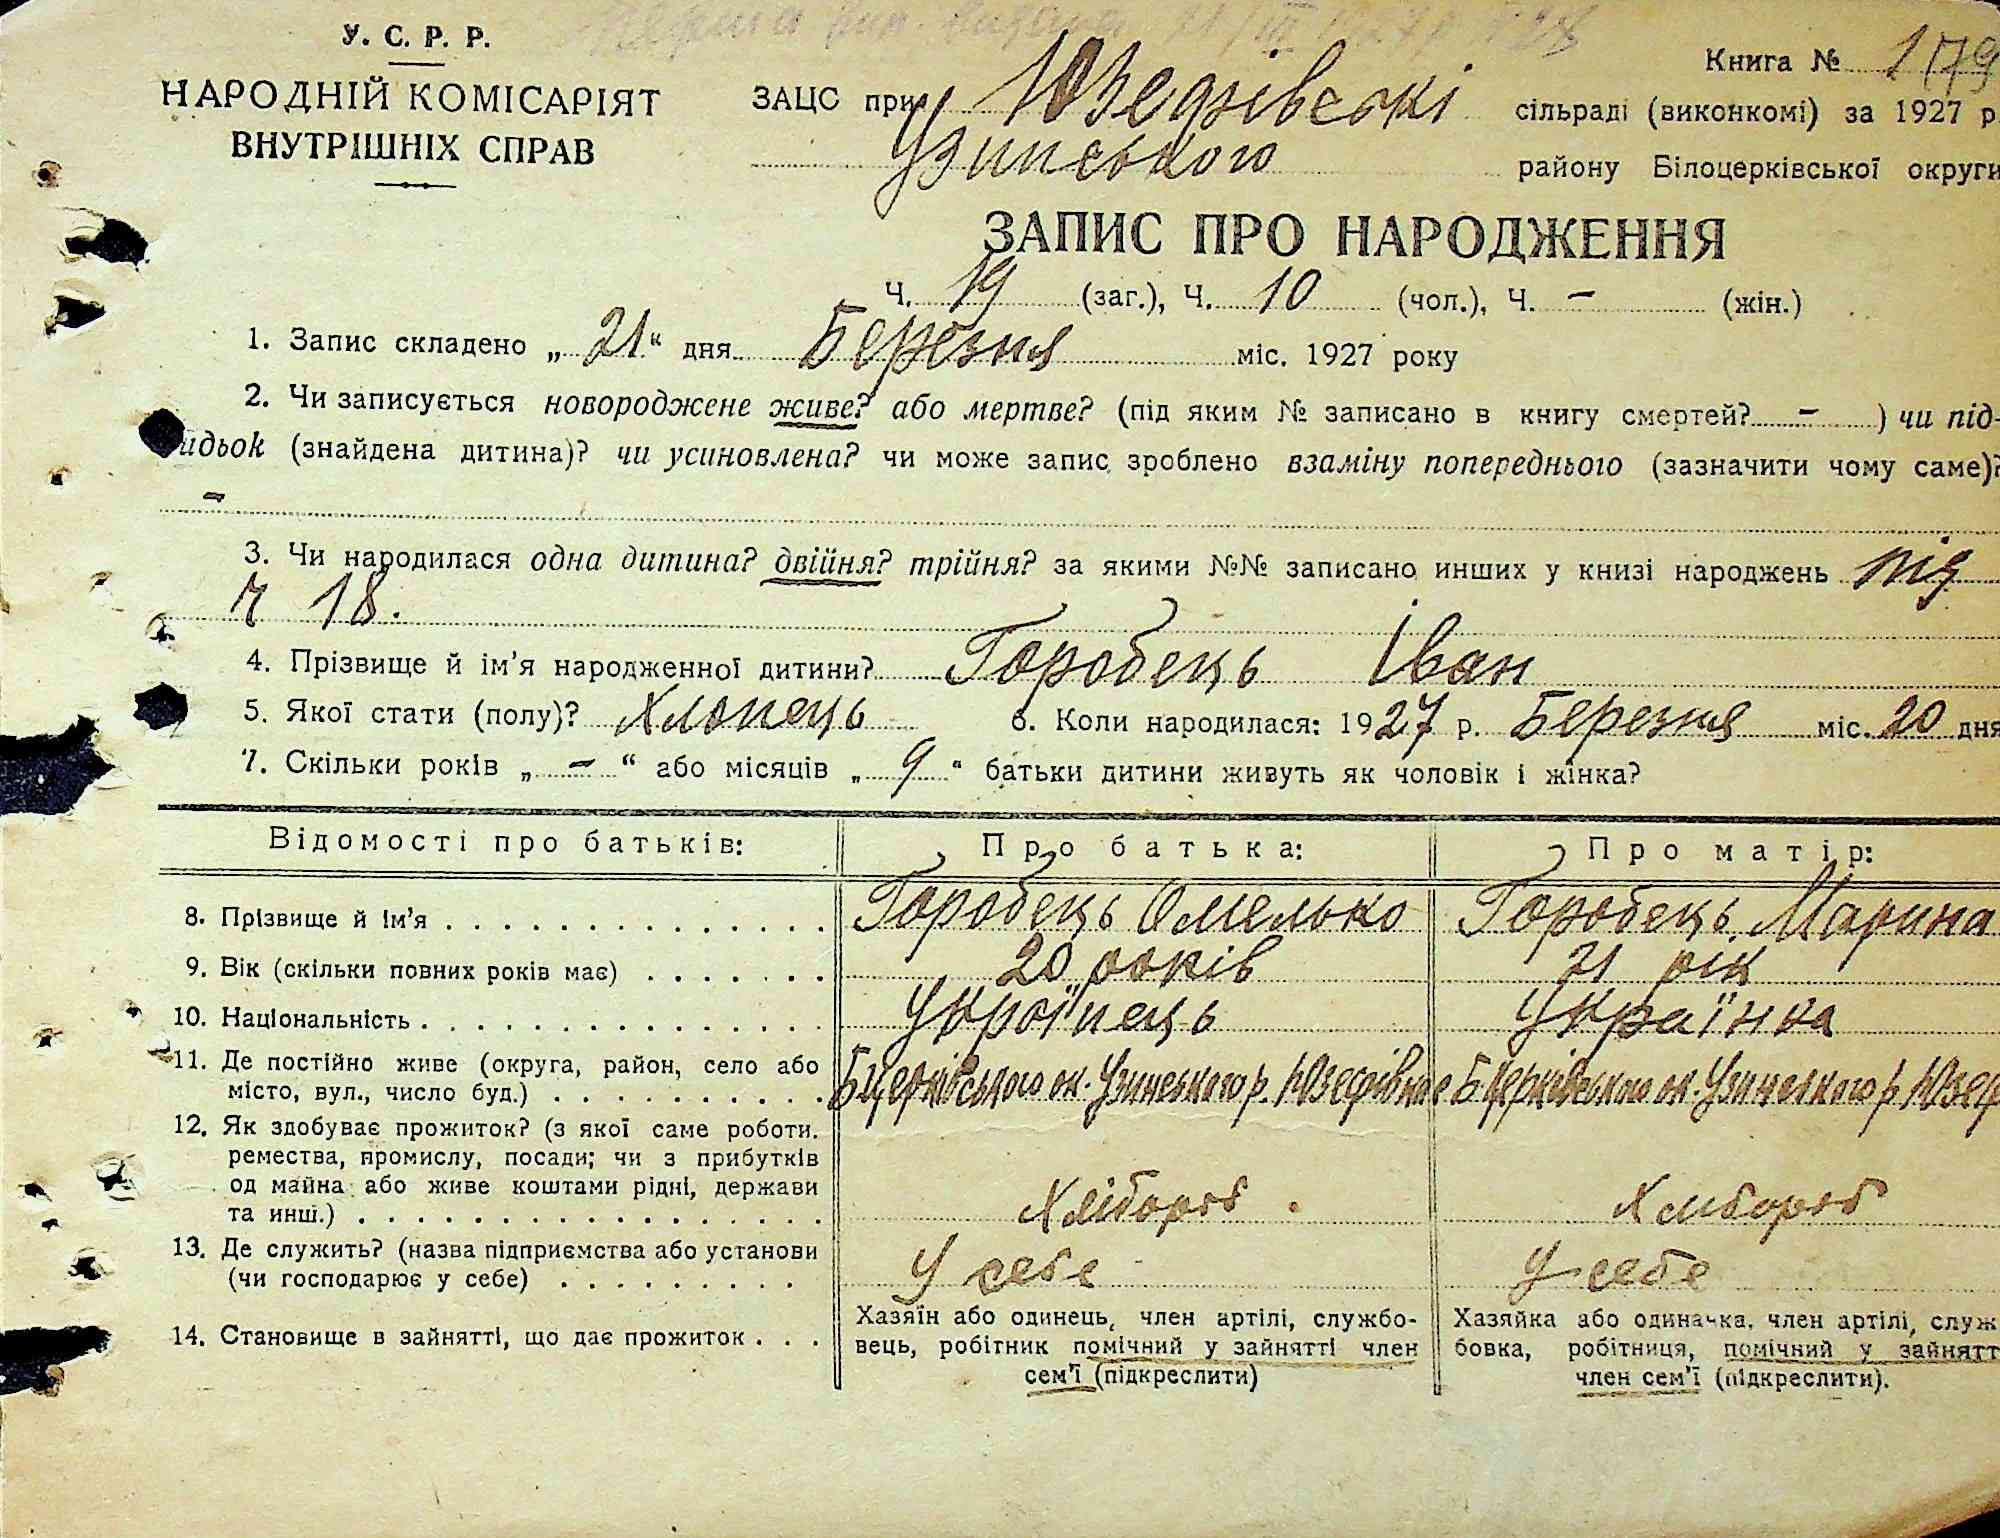 У. С. Р. Р.
НАРОДНІЙ КОМІСАРІЯТ
ВНУТРІШНІХ СПРАВ
Книга № 1
179
ЗАЦС при Юзефівські сільраді (виконкомі) за 1927 р.
Узинського району Білоцерківської округи
ЗАПИС ПРО НАРОДЖЕННЯ
Ч. 19 (заг.), Ч. 10 (чол.), Ч. - (жін.)
1. Запис складено „ 21 “ дня Березня міс. 1927 року
2. Чи записується новороджене живе? або мертве? (під яким № записано в книгу смертей? - ) чи під-
идьок (знайдена дитина)? чи усиновлена? чи може запис зроблено взаміну попереднього (зазначити чому саме)?
-
3. Чи народилася одна дитина? двійня? трійня? за якими №№ записано инших у книзі народжень під
ч 18.
4. Прізвище й ім'я народженної дитини? Горобець Іван
5. Якої стати (полу)? Хлопець 6. Коли народилася: 1927 р. Березня міс. 20 дня
7. Скільки років „ - “ або місяців „ 9 “ батьки дитини живуть як чоловік і жінка?
Відомості про батьків: Про батька: Про матір:
8. Прізвище й ім'я Горобець Омелько Горобець Марина
9. Вік (скільки повних років має) 20 років 21 рік
10. Національність Україпець Українка
11. Де постійно живе (округа, район, село або
місто, вул., число буд.) Б церківського ок. Узинського р. Юзефівка Б церківського ок. Узинського р Юзеф
12. Як здобуває прожиток? (з якої саме роботи,
ремества, промислу, посади; чи з прибутків
од майна або живе коштами рідні, держави
та инш.) Хлібороб Хлібороб
13. Де служить? (назва підприємства або установи
(чи господарює у себе) У себе У себе
14. Становище в зайнятті, що дає прожиток
Хазяїн або одинець, член артілі, службо-
вець, робітник помічний у зайнятті член
сем'ї (підкреслити)
Хазяйка або одиначка, член артілі, служ
бовка, робітниця, помічний у зайнятт
член сем'ї (підкреслити).